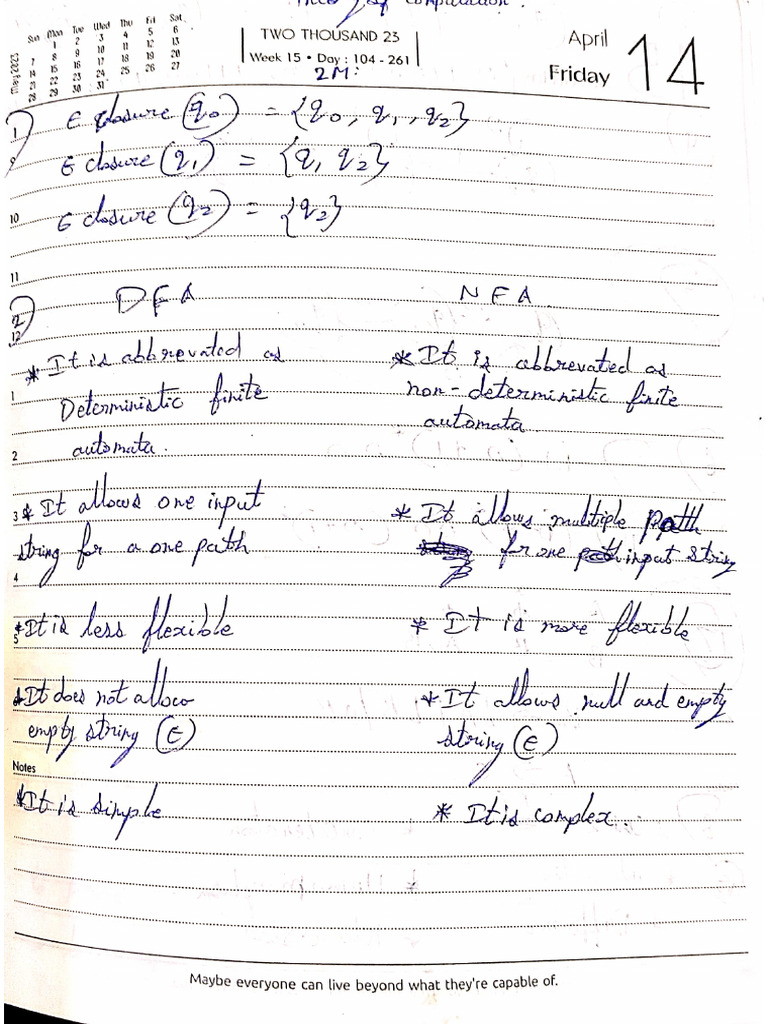 Theory of computation.
Sun Mon Tue Wed Thu Fri Sat
1 2 3 4 5 6
7 8 9 10 11 12 13
14 15 16 17 18 19 20
21 22 23 24 25 26 27
28 29 30 31
May 2023
TWO THOUSAND 23
Week 15 • Day : 104 - 261
2M:
April
Friday
14
1) ϵ closure (q0) = {q0, q1, q2}
9 ϵ closure (q1) = {q1 q2}
10 ϵ closure (q2) = {q2}
11
2) DFA NFA
12
* It is abbrevated as * It is abbrevated as
1 Deterministic finite non-deterministic finite
2 automata. automata
3 * It allows one input * It allows multiple path
string for a one path for one input string
4
5 * It is less flexible * It is more flexible
* It does not allow * It allows null and empty
empty string (ϵ) string (ϵ)
Notes
* It is simple * It is complex.
Maybe everyone can live beyond what they're capable of.